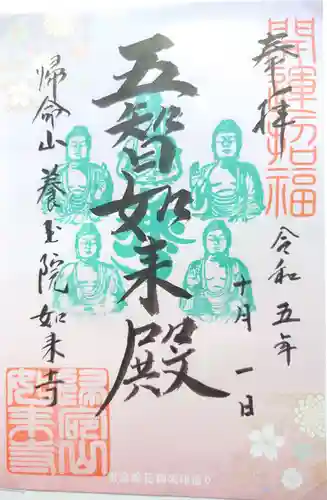 開運招福
奉拝
令和五年
十月一日
五智如来殿
帰命山養玉院如来寺
帰命山
如来寺